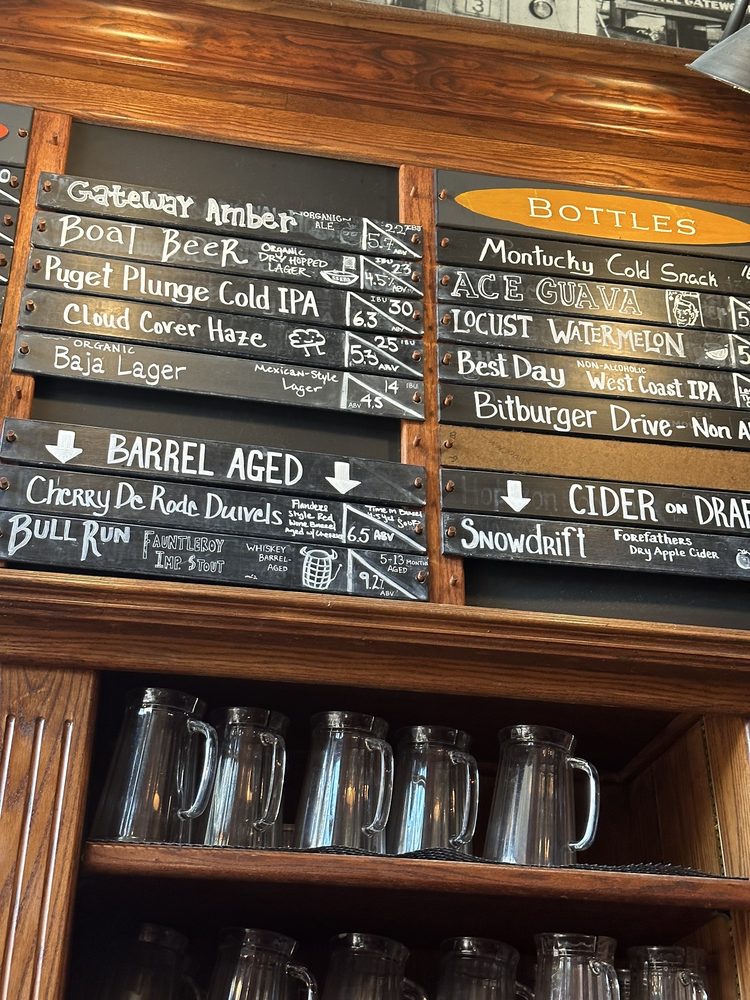 Gateway Amber ORGANIC ALE 5.7 ABV
BOAT BEER ORGANIC DRY HOPPED LAGER 23 4.5% ABV
Puget Plunge Cold IPA IBU 30 6.3 ABV
Cloud Cover Haze 25 IBU 5.3 ABV
ORGANIC
Baja Lager Mexican-Style Lager 14 IBU ABV 4.5
BARREL AGED
Cherry De Rode Duivels Flanders Style Red Wine Barrel Aged w/ 6.5 ABV
BULL RUN FAUNTLEROY IMP STOUT WHISKEY BARREL-AGED 5-13 MONTHS AGED 9.2% ABV
BOTTLES
Montucky Cold Snack
ACE GUAVA
LOCUST WATERMELON
Best Day NON-ALCOHOLIC West Coast IPA
Bitburger Drive - Non
CIDER ON
Snowdrift Forefathers Dry Apple Cider